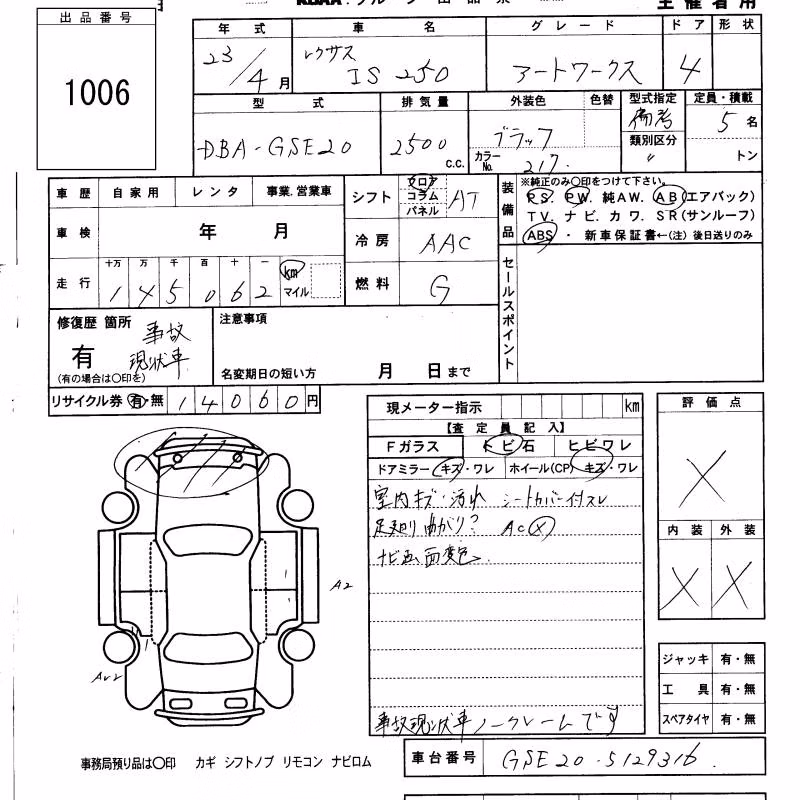 主催者用
出品番号
1006
年式 車名 グレード ドア 形状
23/4月 レクサス IS 250 アートワークス 4
型式 排気量 外装色 色替 型式指定 定員・積載
DBA-GSE20 2500 c.c. ブラック 備考 5名
カラーNo. 217. 類別区分 〃 トン
車歴 自家用 レンタ 事業.営業車
車検 年 月
走行 十万 万 千 百 十 一
1 4 5 0 6 2 km マイル
シフト フロア コラム パネル AT
冷房 AAC
燃料 G
装備品
※純正のみ○印をつけて下さい。
PS. PW. 純AW. AB(エアバック)
TV. ナビ. カワ. SR(サンルーフ)
ABS ・ 新車保証書←(注) 後日送りのみ
セールスポイント
修復歴 箇所 事故現状車
有
(有の場合は○印を)
注意事項
名変期日の短い方 月 日まで
リサイクル券 有・無 1 4 0 6 0 円
現メーター指示 km
【査定員記入】
Fガラス トビ石 ヒビワレ
ドアミラー キズ・ワレ ホイール(CP) キズ・ワレ
室内キズ・汚れ シートカバー付スレ
足廻り曲がり? AC X
ナビ画面変色.
事故現状車ノークレームです
評価点
X
内装 外装
X X
A2
ジャッキ 有・無
工具 有・無
スペアタイヤ 有・無
事務局預り品は○印 カギ シフトノブ リモコン ナビロム
車台番号 GSE20-5129316.